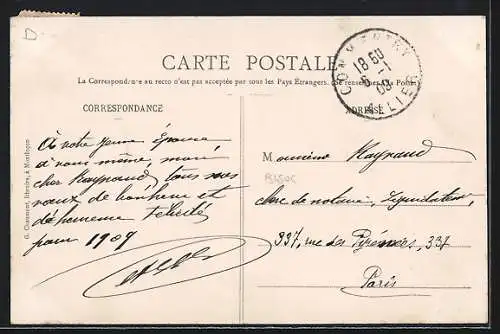 D
CARTE POSTALE
La Correspondance au recto n'est pas acceptée par tous les Pays Étrangers. (Se renseigner à la Poste)
COMMENTRY
18 50
6 - 1
09
ALLIER
CORRESPONDANCE
ADRESSE
A votre jeune Épouse
à vous même, mon
cher Raynaud tous nos
vœux de bonheur et
de heureuse félicité
pour 1909
Monsieur Raynaud
clerc de notaire, Liquidateur,
337, rue des Pyrénées, 337
Paris
G. Chaumont, libraire, à Montluçon